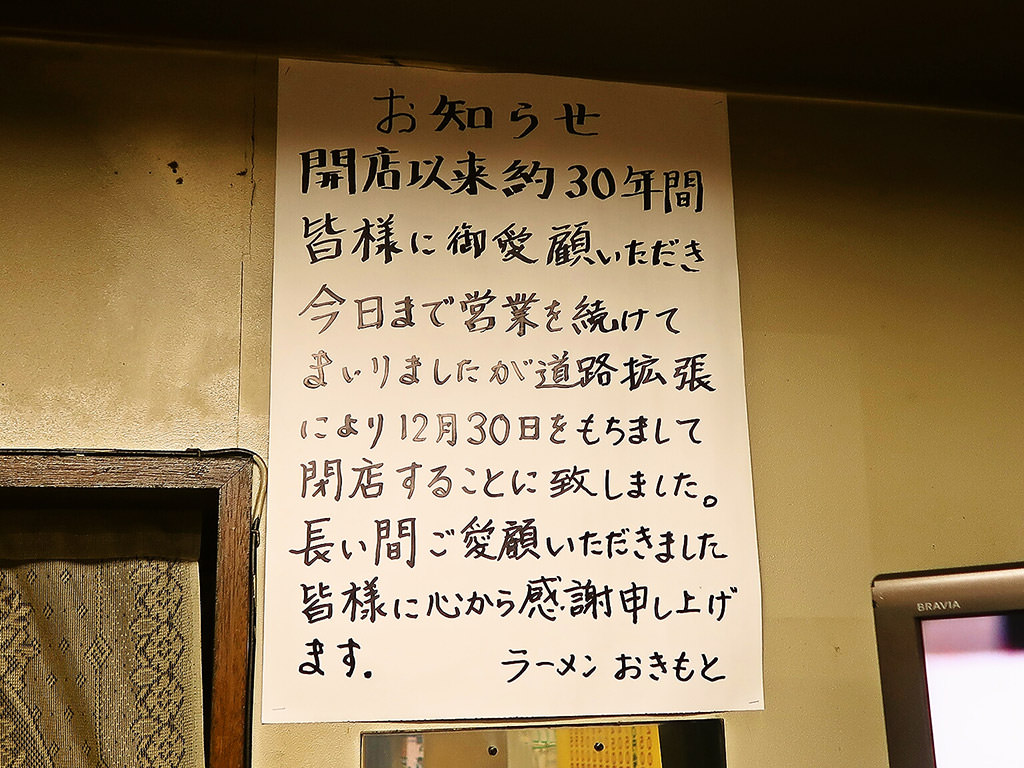 お知らせ
開店以来約30年間
皆様に御愛顧いただき
今日まで営業を続けて
まいりましたが道路拡張
により12月30日をもちまして
閉店することに致しました。
長い間ご愛顧いただきました
皆様に心から感謝申し上げ
ます.
ラーメン おきもと
BRAVIA